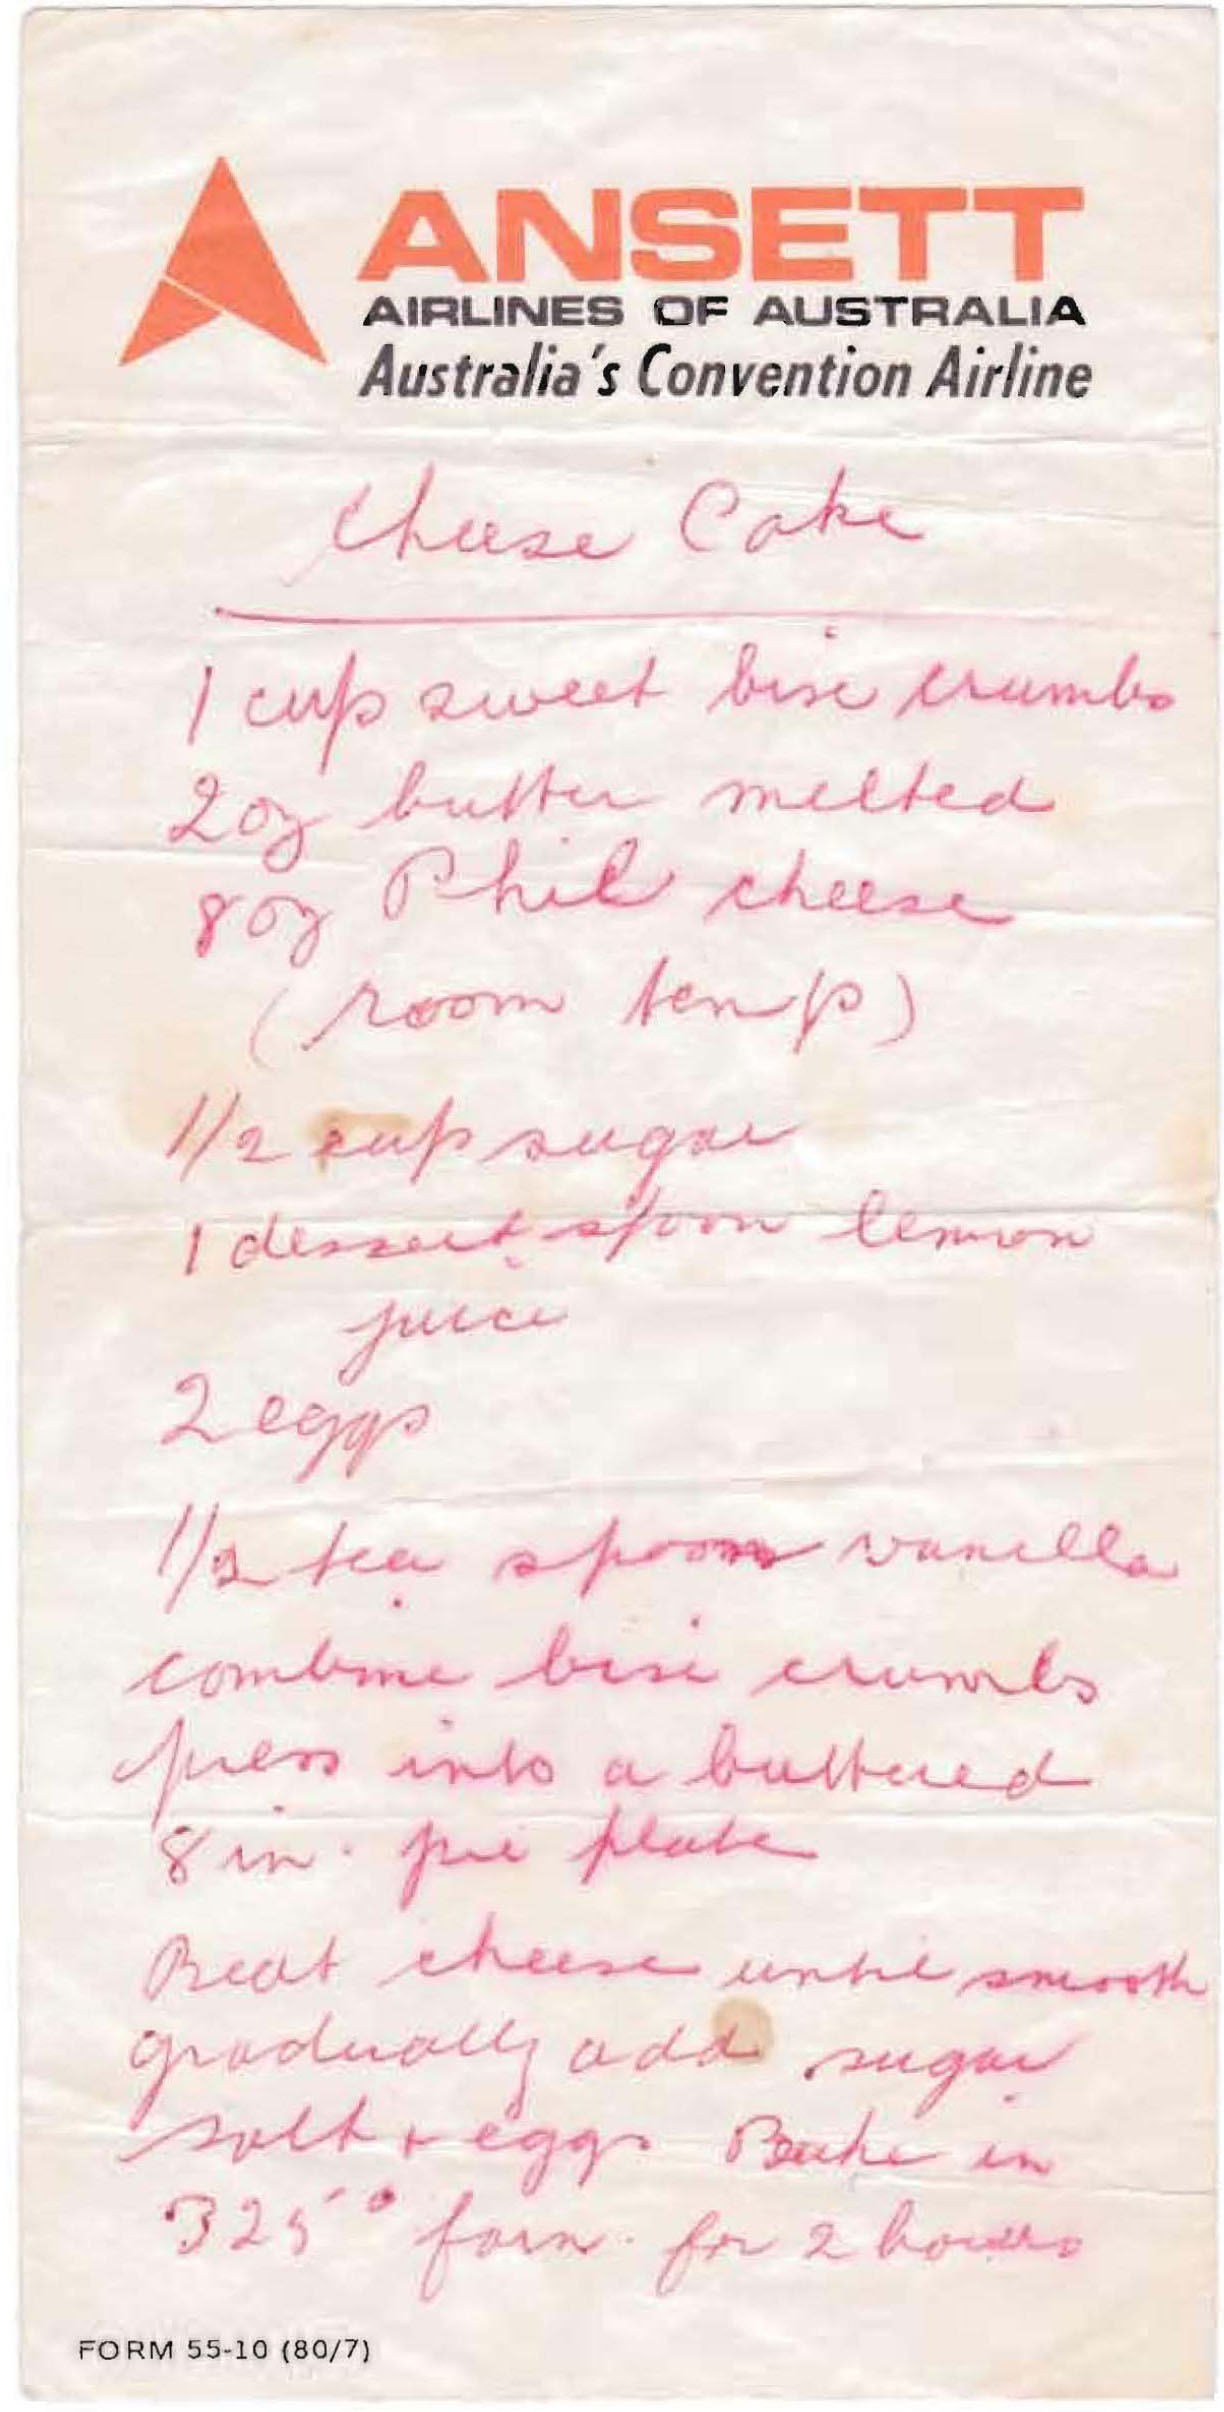 ANSETT
AIRLINES OF AUSTRALIA
Australia's Convention Airline
Cheese Cake
1 cup sweet bisc crumbs
2 oz butter melted
8 oz Phil cheese
(room temp)
1/2 cup sugar
1 dessert spoon lemon
juice
2 eggs
1/2 tea spoon vanilla
combine bisc crumbs
press into a buttered
8 in. pie plate
Beat cheese until smooth
gradually add sugar
salt + eggs Bake in
325° farn. for 2 hours
FORM 55-10 (80/7)